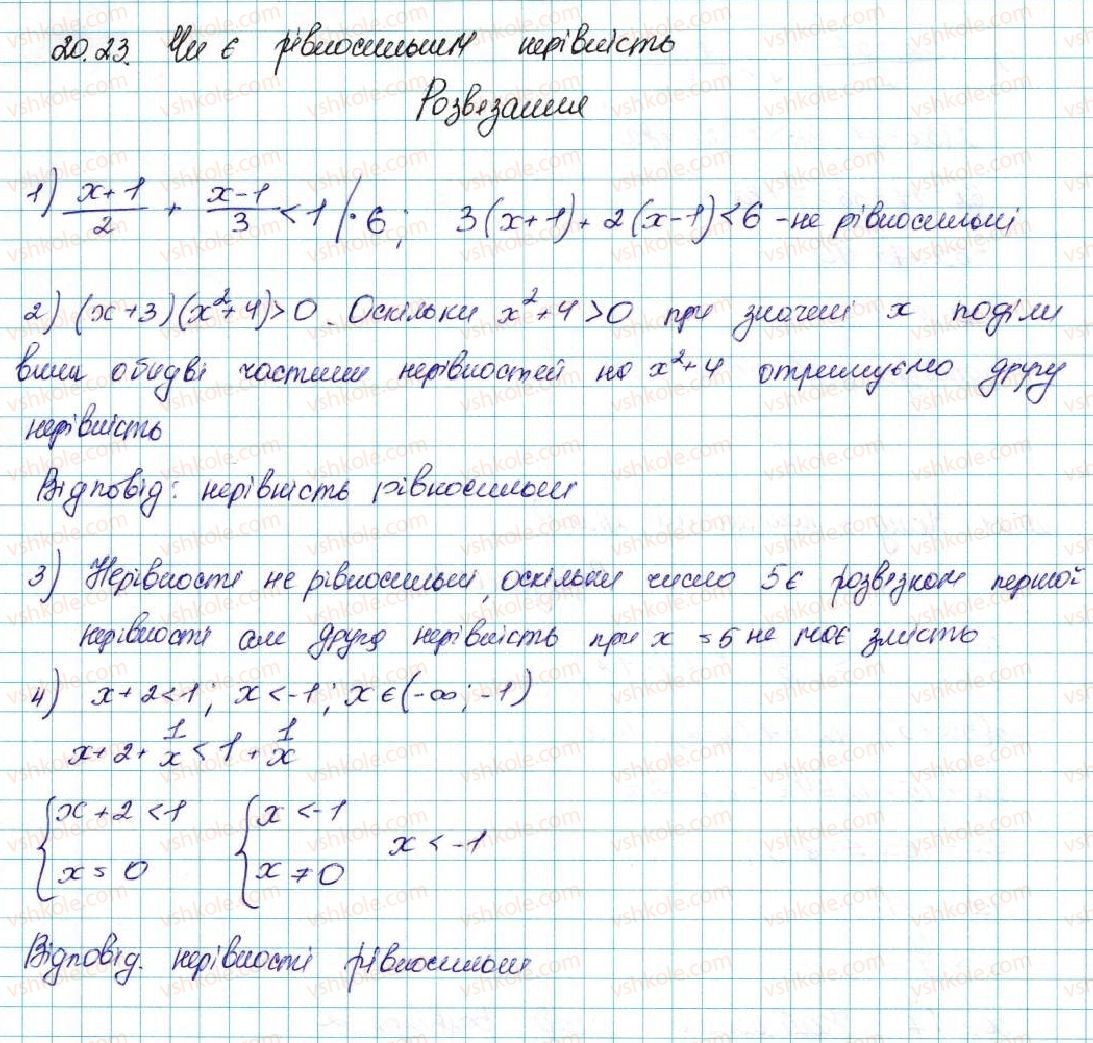 20.23. Чи є рівносильним нерівність
Розвезання
1) (x+1)/2 + (x-1)/3 < 1 | · 6; 3(x+1)+2(x-1)<6 - не рівносильні
2) (x+3)(x²+4)>0. Оскільки x²+4>0 при значені x поділи
вши обидві частини нерівностей на x²+4 отримуємо другу
нерівність
Відповід: нерівність рівносильни
3) Нерівності не рівносильні, оскільки число 5 є розвезком першої
нерівності але друга нерівність при x = 5 не має змість
4) x+2<1; x<-1; x∈(-∞; -1)
x+2+ 1/x < 1 + 1/x
{ x+2<1 { x<-1 x<-1
{ x = 0 { x ≠ 0
Відповід. нерівності рівносильни
vshkole.com